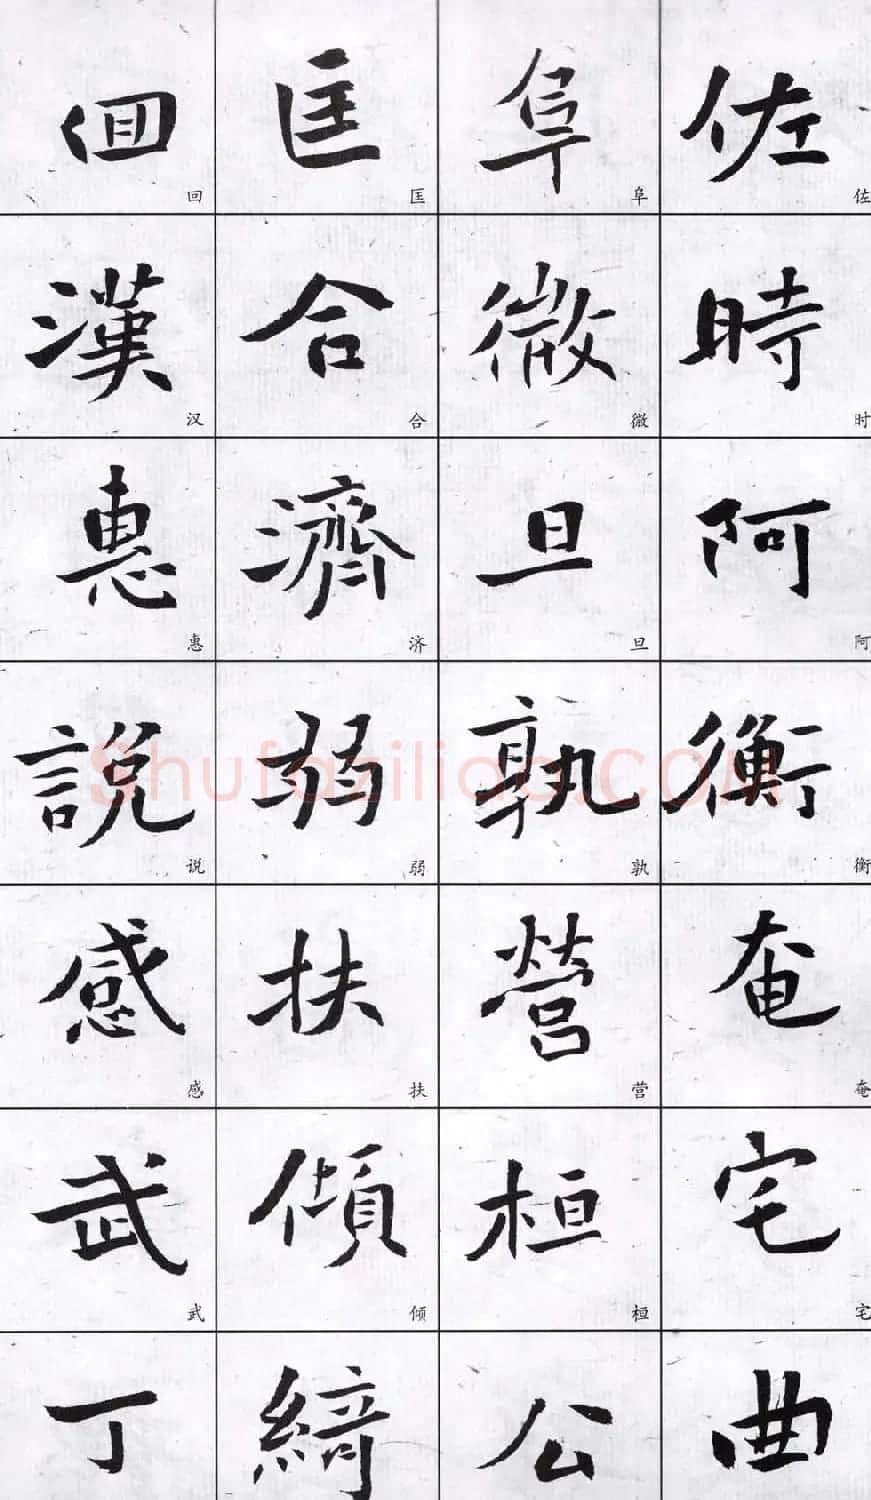 佐時阿衡奄宅曲
阜微旦孰營桓公
匡合濟弱扶傾綺
回漢惠說感武丁
佐时阿衡奄宅
阜微旦孰营桓
匡合济弱扶倾
回汉惠说感武
Shufaziliao.COM